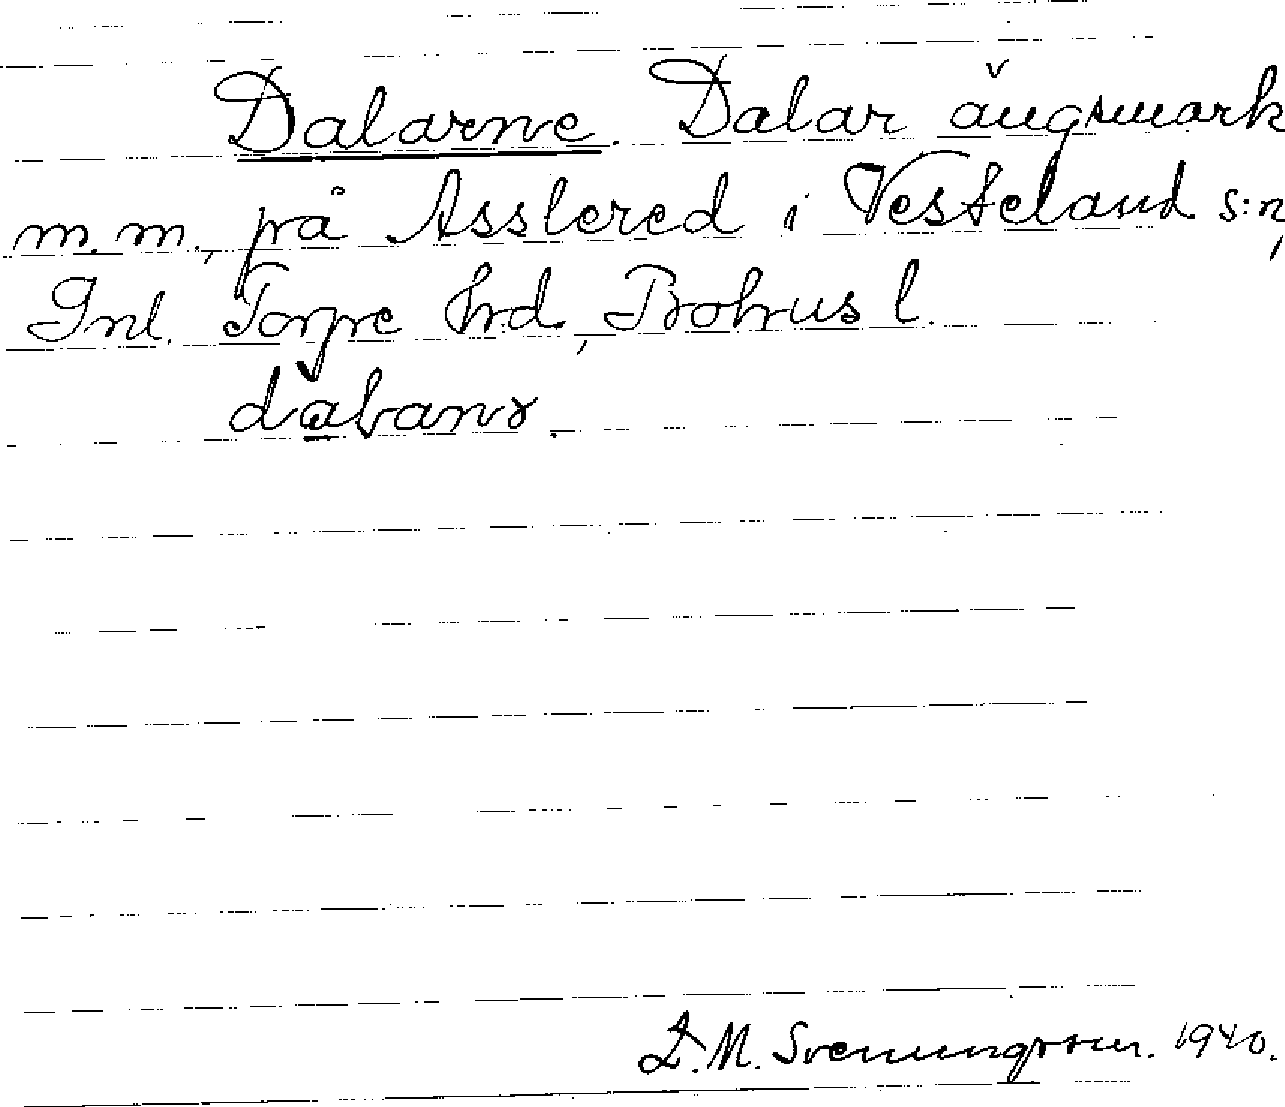 Dalarne. Dalar ängsmark
m.m., på Asslered i Vesteland s:n,
Inl. Torpe hrd, Bohus l.
D.M. Svenungsson. 1940.